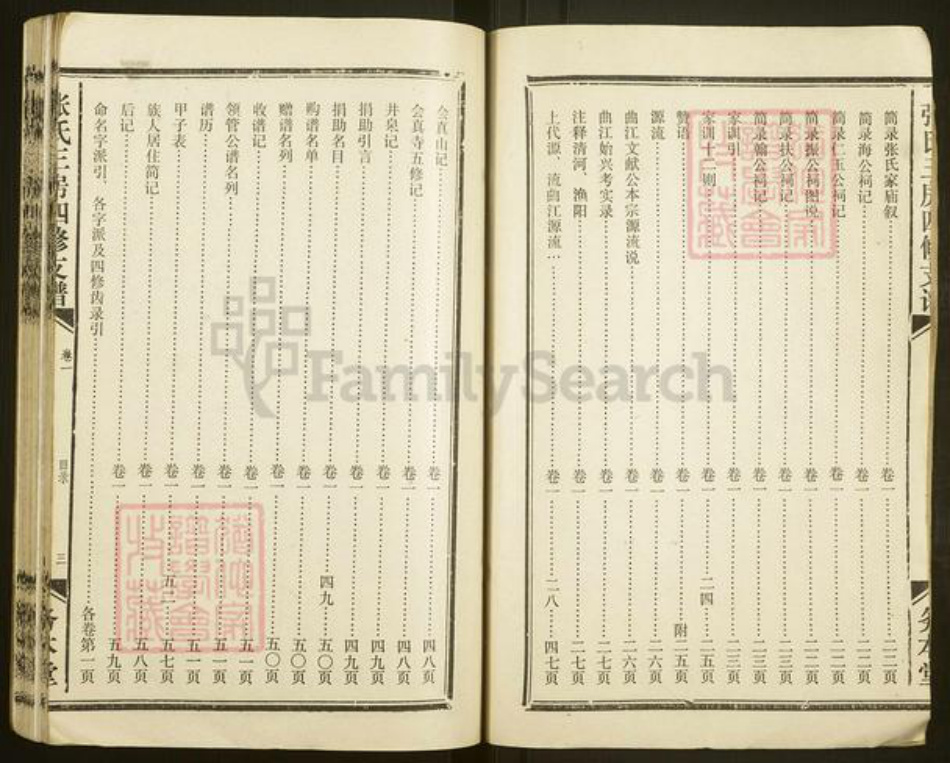 简录张氏家庙叙 卷一 二二页
简录海公祠记 卷一 二二页
简录仁玉公祠记 卷一 二二页
简录振公祠图说 卷一 二二页
简录扶公祠记 卷一 二二页
简录翰公祠记 卷一 二三页
家训引 卷一 二三页
家训十二则 卷一 二四 二五页
赞语 卷一 附二五页
源流 卷一 二六页
曲江文献公本宗源流说 卷一 二六页
曲江始兴考实录 卷一 二七页
注释清河、渔阳 卷一 二七页
上代源、流曲江源流 卷一 二八 四七页
会真山记 卷一 四八页
会真寺五修记 卷一 四八页
井泉记 卷一 四九页
捐助引言 卷一 四九页
捐助名目 卷一 四九 五〇页
购谱名单 卷一 五〇页
赠谱名列 卷一 五〇页
收谱记 卷一 五一页
领管公谱名列 卷一 五一页
谱历 卷一 五一页
甲子表 卷一 五二 五七页
族人居住简记 卷一 五八页
后记 卷一 五九页
命名字派引、各字派及四修齿录引 各卷第一页
张氏三房四修支谱
卷一
目录
三
务本堂
FamilySearch